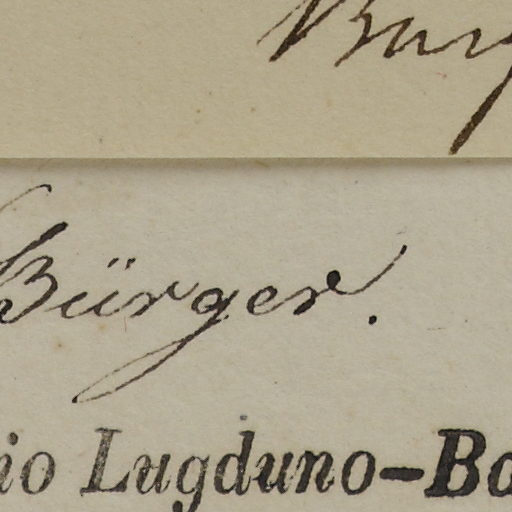 Bürger.
io Lugduno-Ba